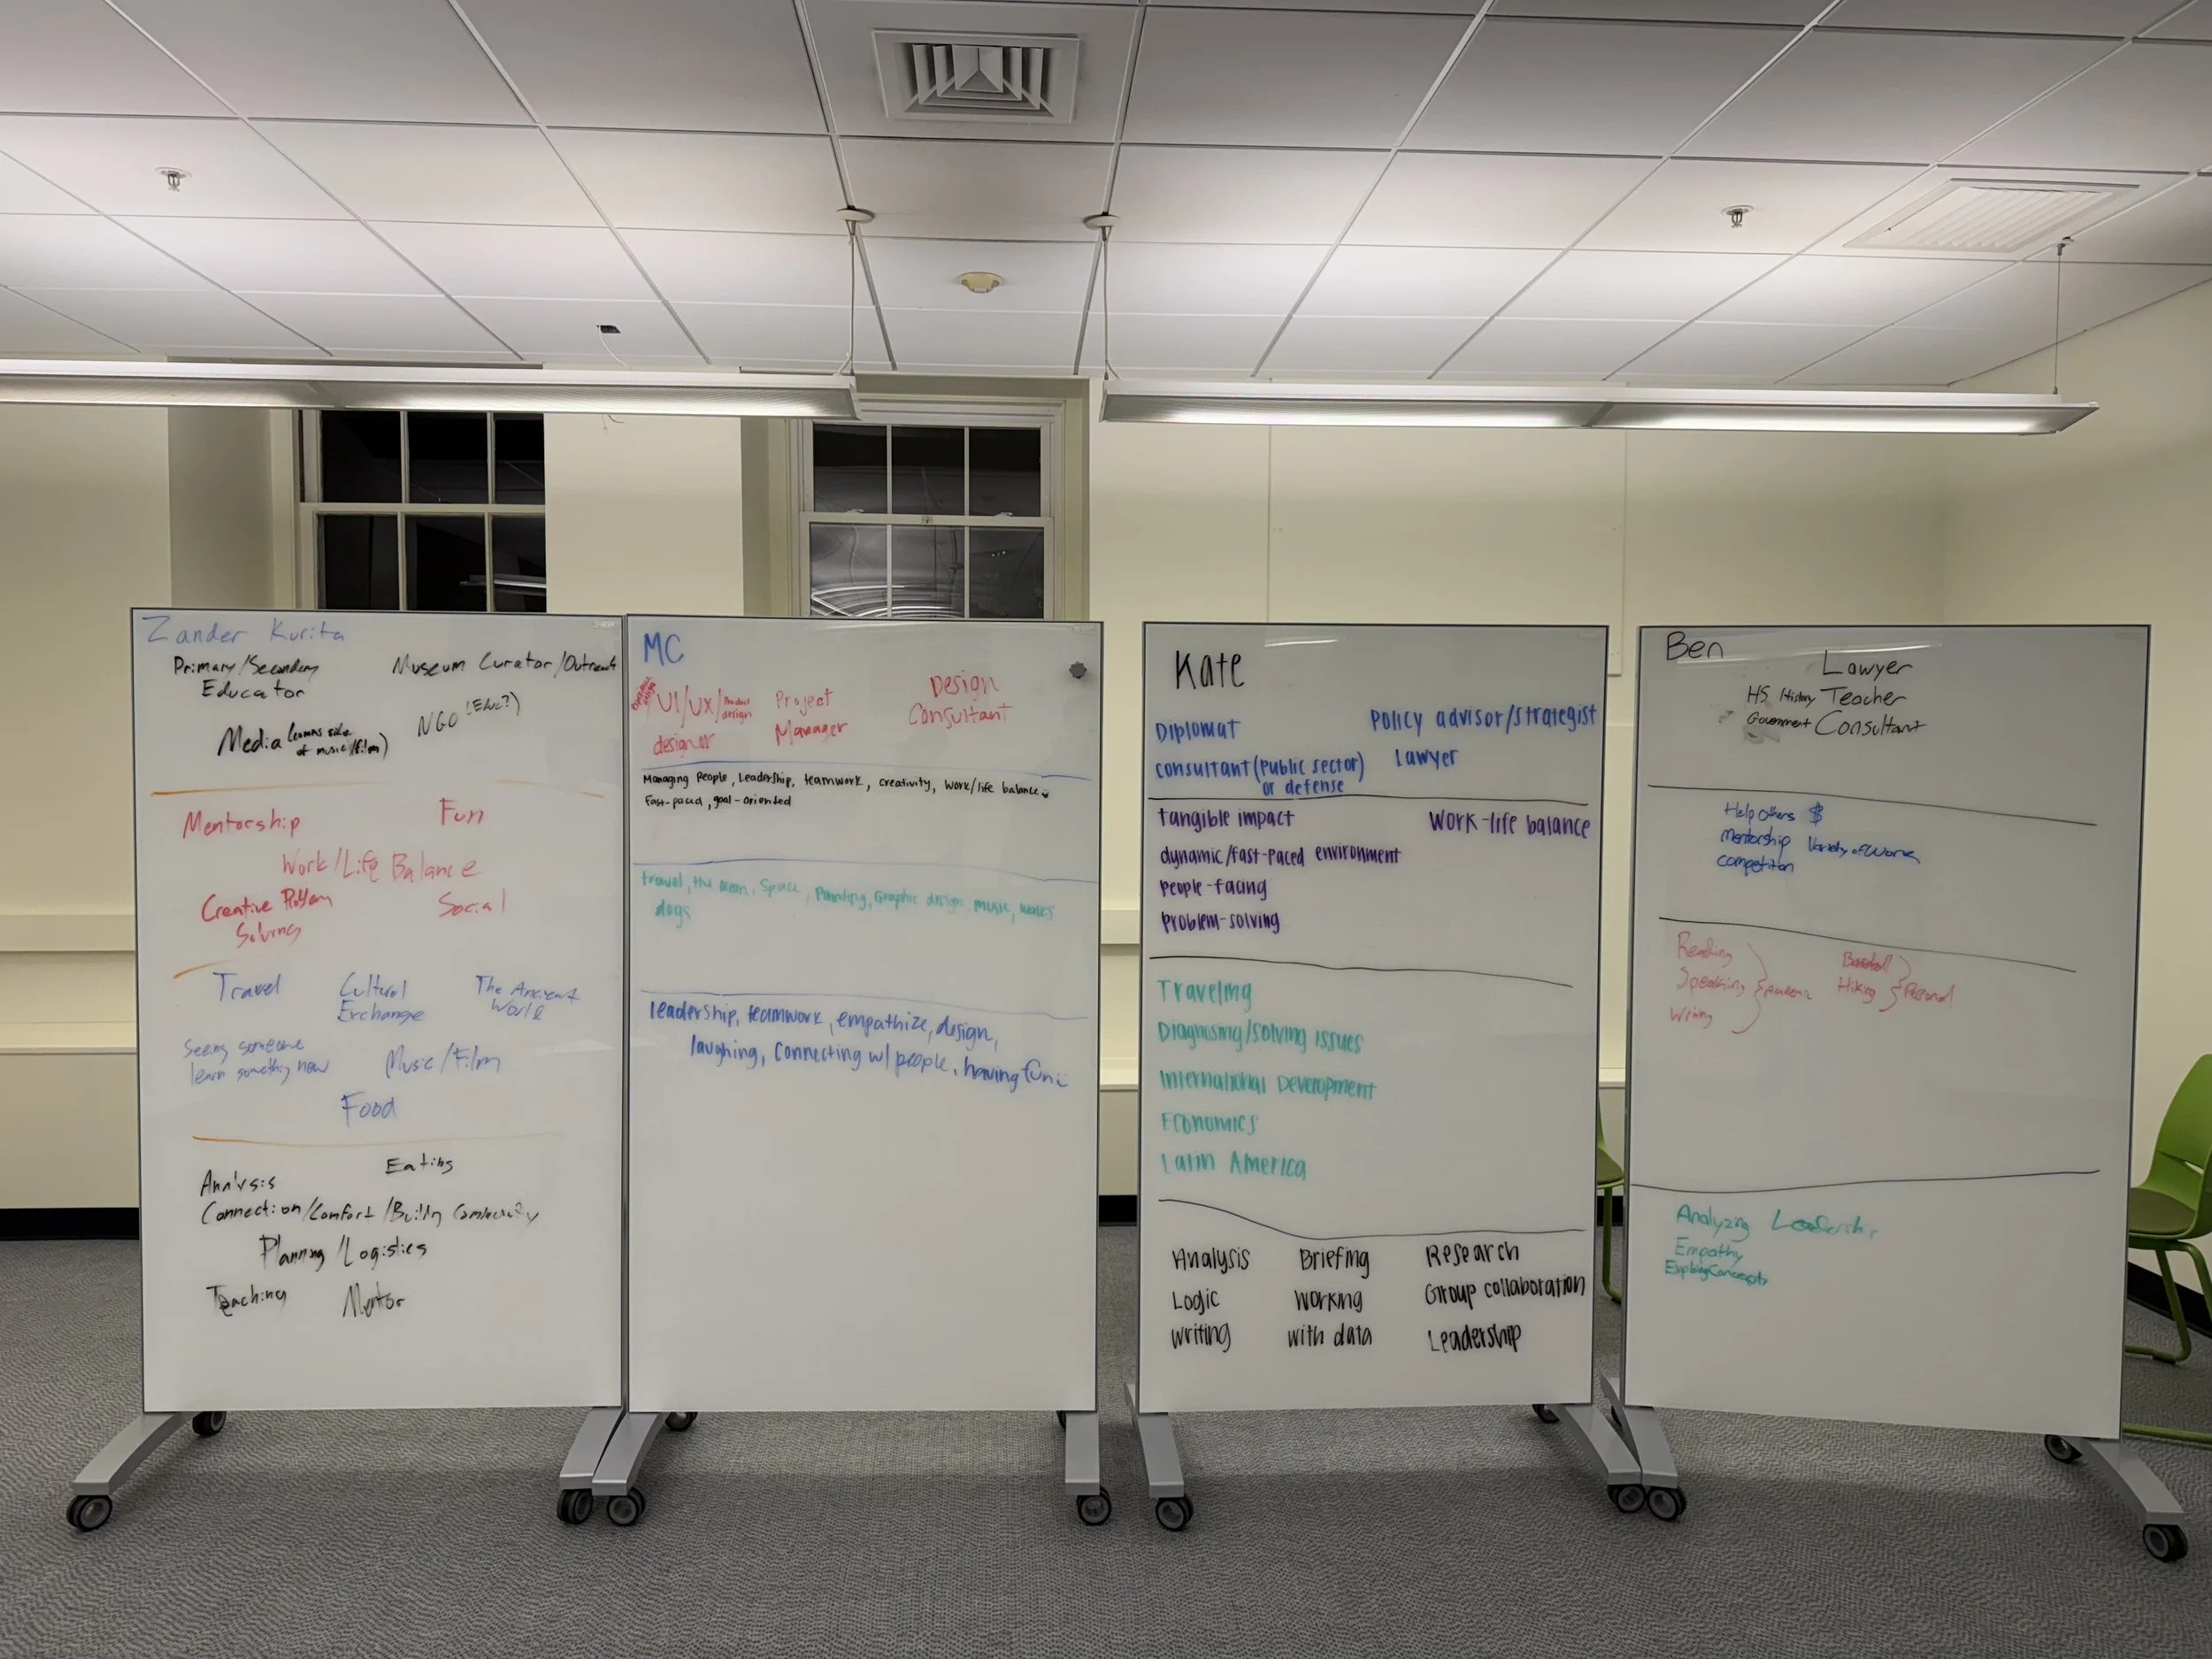 Zander Kurita
Primary/Secondary
Educator
Museum Curator/Outreach
Media (comms side
of music/film)
NGO (Educ?)
Mentorship
Fun
Work/Life Balance
Creative Problem
Solving
Social
Travel
Cultural
Exchange
The Ancient
World
Seeing someone
learn something new
Music/Film
Food
Analysis
Eating
Connection/Comfort/Building Community
Planning/Logistics
Teaching
Mentor
MC
UI/UX/Product
design
designer
Project
Manager
Design
Consultant
Managing People, Leadership, teamwork, creativity, work/life balance,
Fast-paced, goal-oriented
travel, the ocean, Space, Painting, Graphic design, music,
dogs
leadership, teamwork, empathize, design,
laughing, connecting w/ people, having fun
Kate
Diplomat
Policy advisor/strategist
consultant (public sector)
or defense
Lawyer
tangible impact
work-life balance
dynamic/fast-paced environment
people-facing
problem-solving
Traveling
Diagnosing/solving issues
International Development
Economics
Latin America
Analysis
Briefing
Research
Logic
Working
with data
Group collaboration
writing
Leadership
Ben
Lawyer
HS History Teacher
Government Consultant
Help others $
Mentorship Variety of Work
competition
Reading
Speaking
Writing
Academic
Baseball
Hiking
Personal
Analyzing Leadership
Empathy
Explaining Concepts